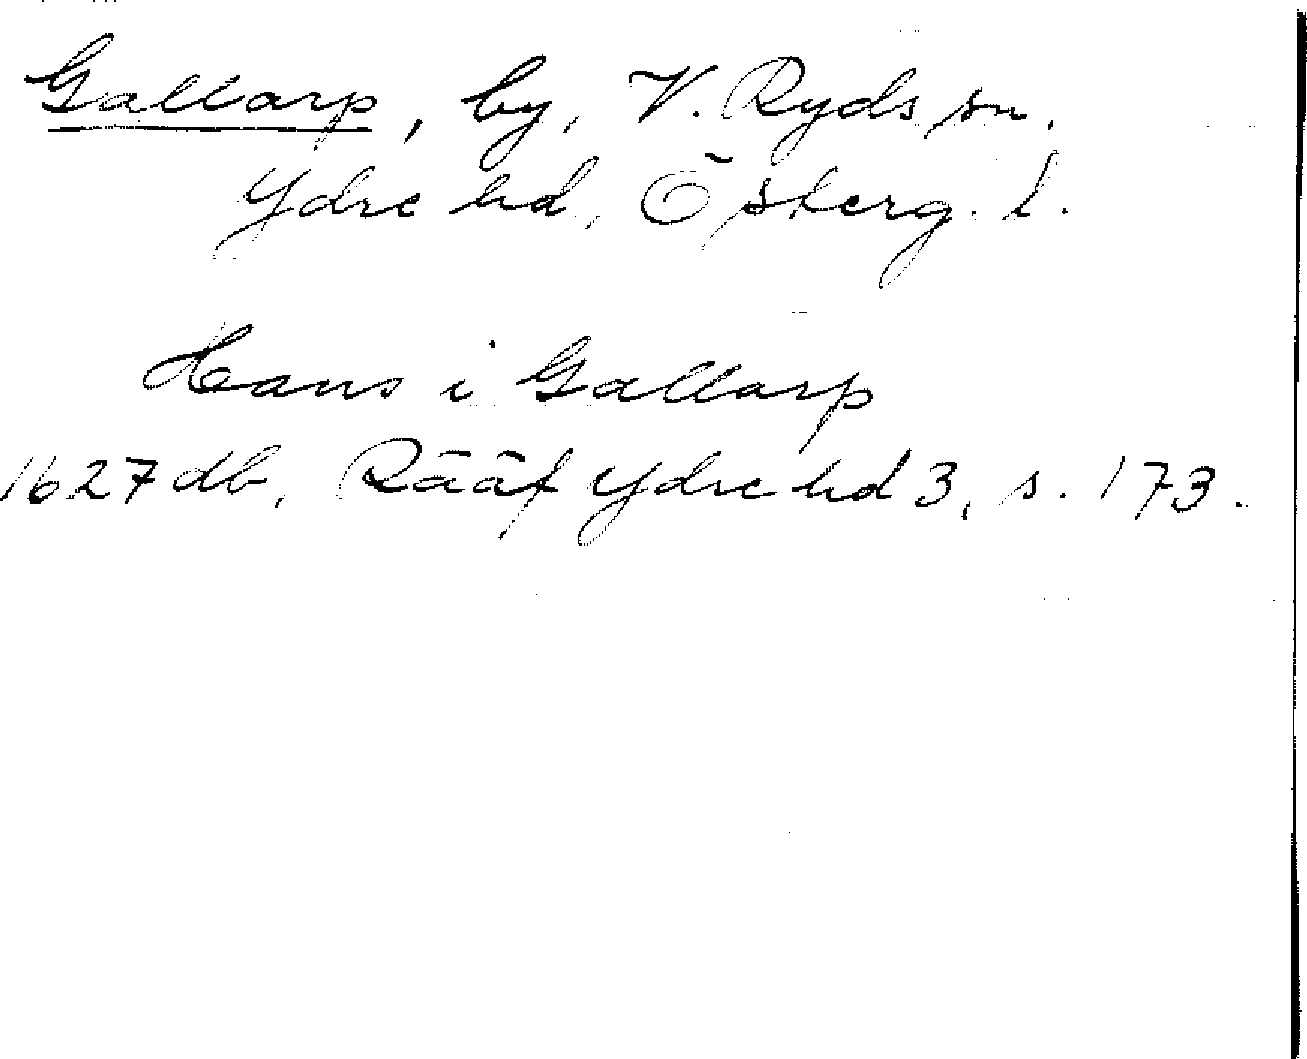 Gallarp, by, V. Ryds sn,
Ydre hd, Östergö. l.
Hans i Gallarp
1627 db, Rääf Ydre hd 3, s. 173.